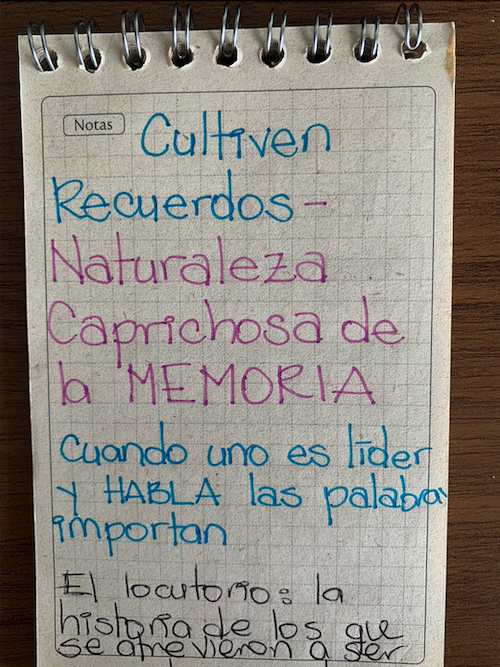 Notas
Cultiven
Recuerdos -
Naturaleza
Caprichosa de
la MEMORIA
Cuando uno es líder
y HABLA las palabras
importan
El locutorio: la
historia de los que
se atrevieron a ser